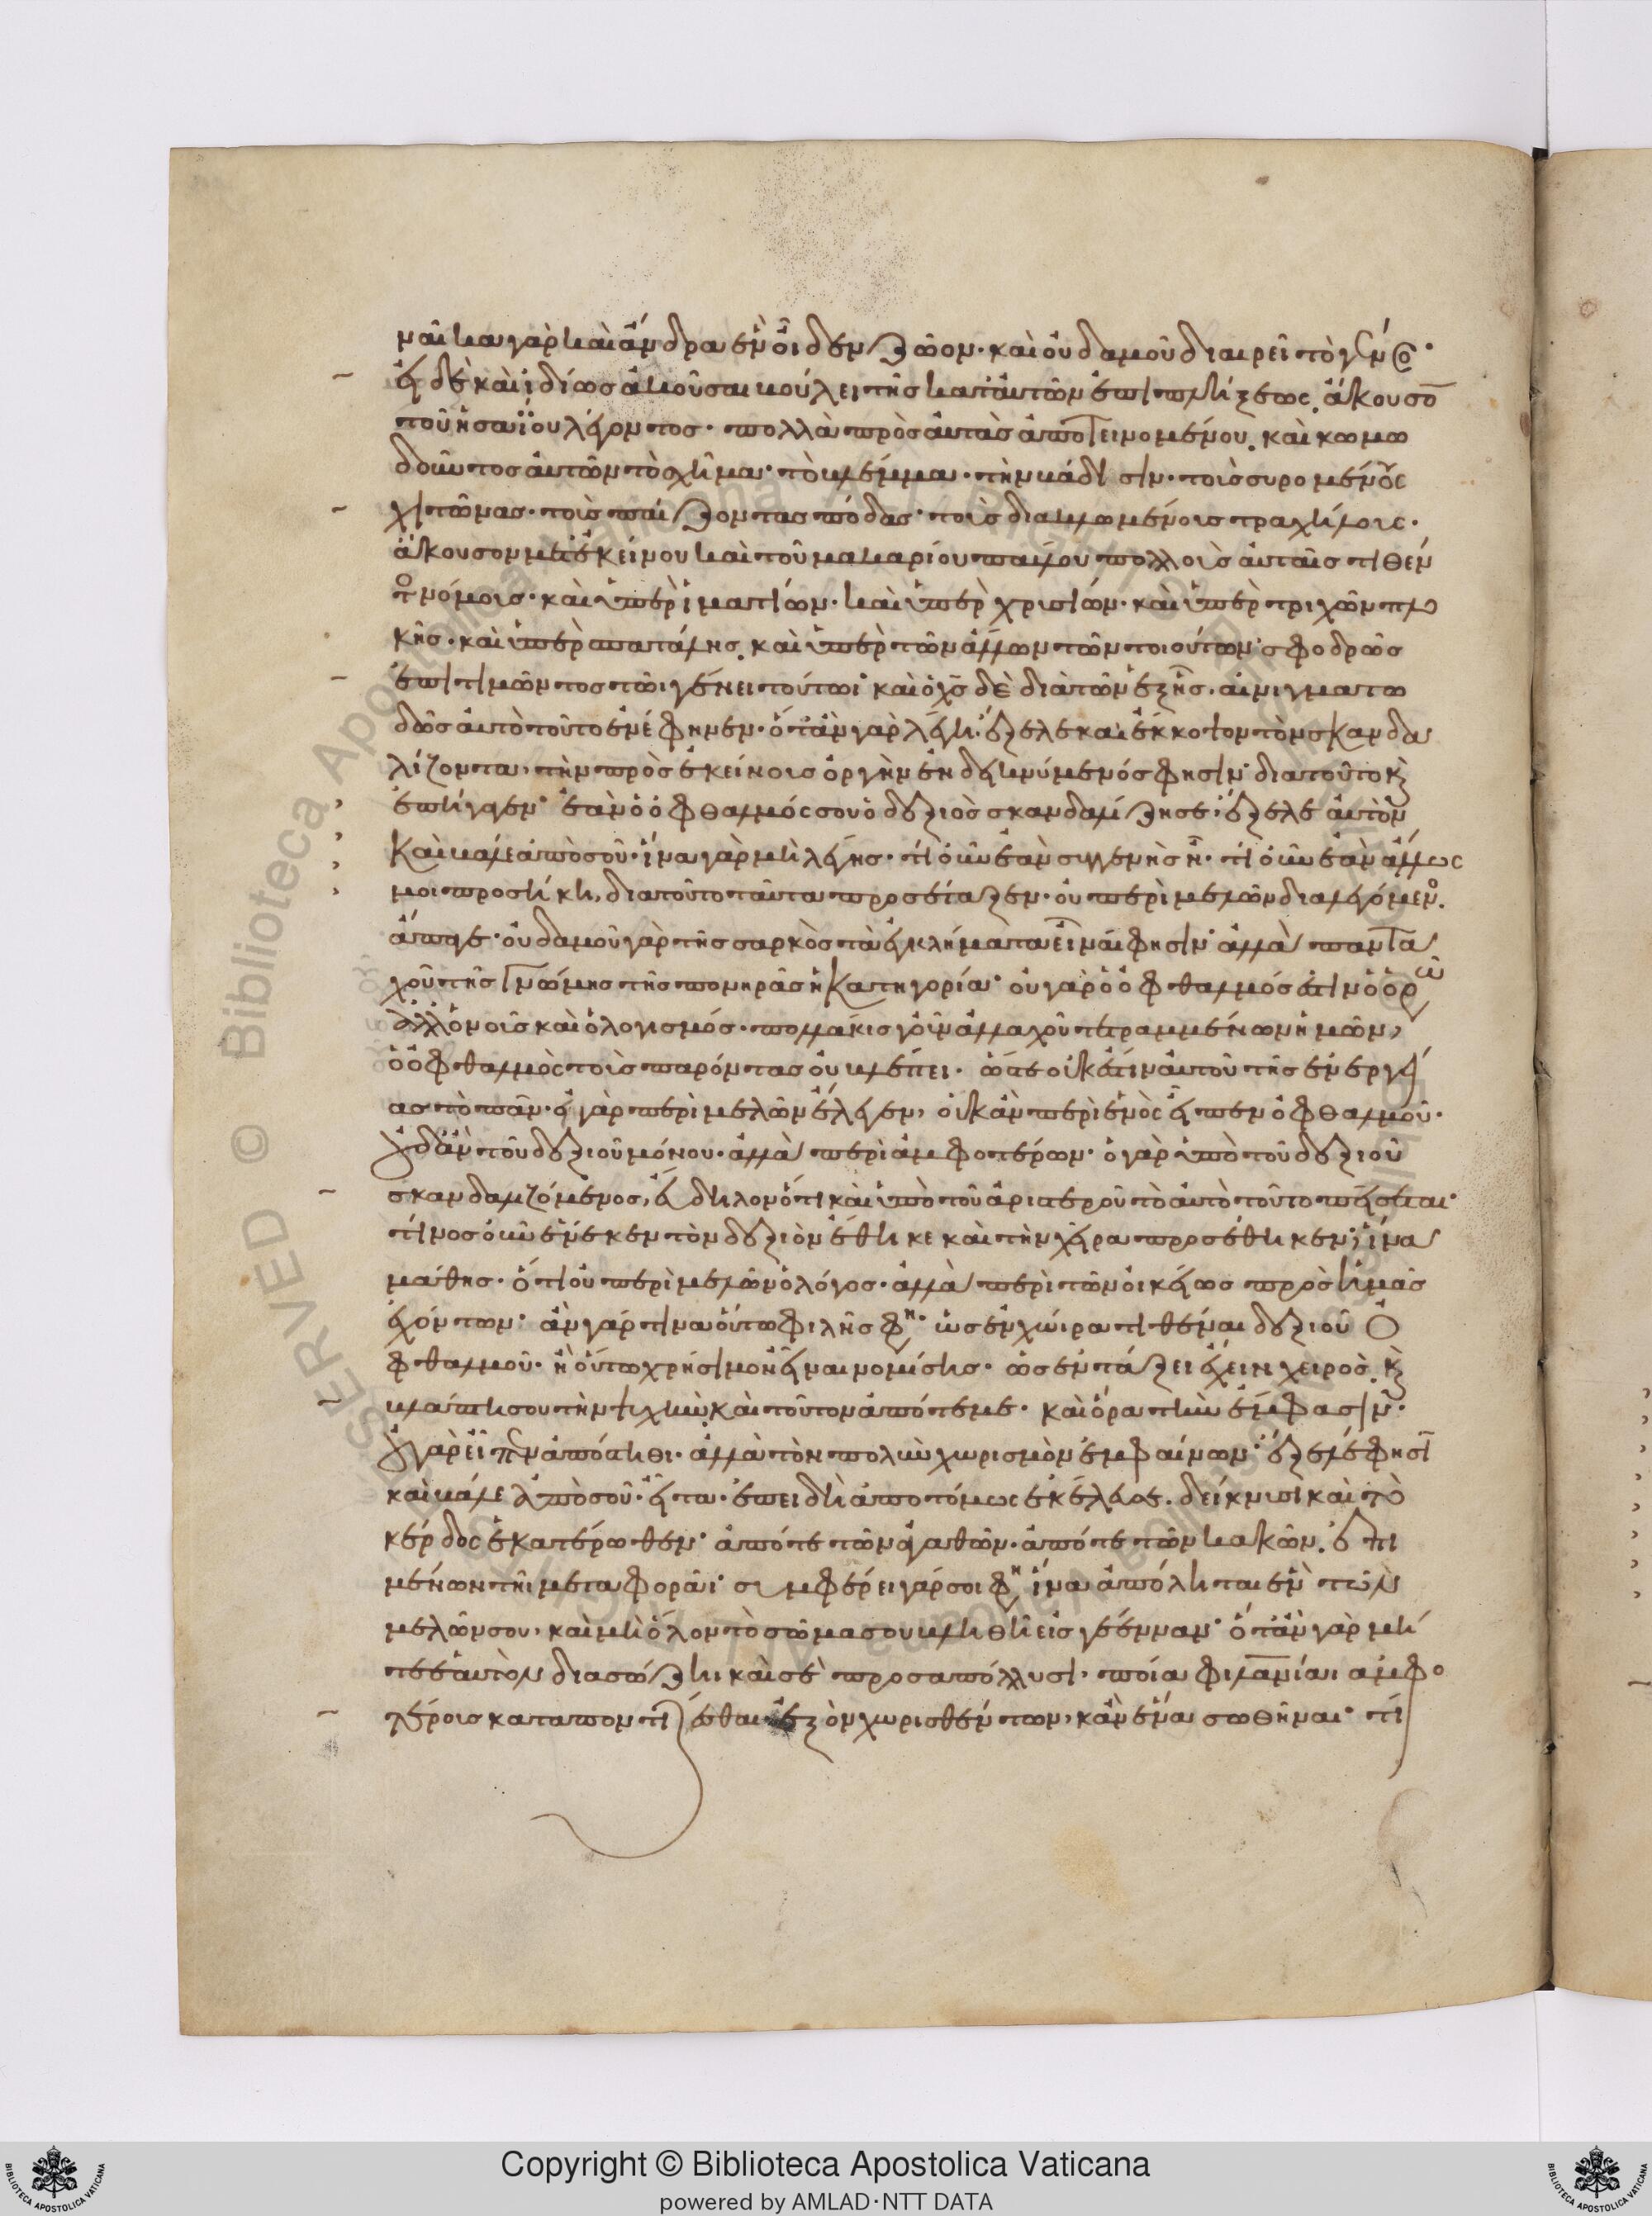 ναῖκα γὰρ καὶ ἄνδρα ἓν οἶδεν ζῶον· καὶ οὐδαμοῦ διαιρεῖ τὸ γένος·
εἰ δὲ καὶ ἰδίως ἀκοῦσαι βούλει τῆς κατ' αὐτῶν ἐπιπλήξεως, ἄκουσον
τοῦ ἡσαΐου λέγοντος· πολλὰ πρὸς αὐτὰς ἀποτεινομένου, καὶ κωμω
δοῦντος αὐτῶν τὸ σχῆμα· τὸ βλέμμα· τὴν βάδισιν· τοὺς συρομένους
χιτῶνας· τοὺς παίζοντας πόδας· τοὺς διακλωμένους τραχήλους·
ἄκουσον μετ' ἐκείνου καὶ τοῦ μακαρίου παύλου πολλοὺς αὐταῖς τιθέν
τος νόμους· καὶ ὑπὲρ ἱματίων· καὶ ὑπὲρ χρυσίων· καὶ ὑπὲρ τριχῶν πλο
κῆς· καὶ ὑπὲρ σπατάλης, καὶ ὑπὲρ τῶν ἄλλων τῶν τοιούτων σφοδρῶς
ἐπιτιμῶντος τῶι γένει τούτωι· καὶ ὁ χς δὲ διὰ τῶν ἑξῆς, αἰνιγματω
δῶς αὐτὸ τοῦτο ἐνέφηνεν· ὅταν γὰρ λέγη, ἔξελε καὶ ἔκκοψον τὸν σκανδα
λίζοντα, τὴν πρὸς ἐκείνους ὀργὴν ἐνδεικνύμενός φησιν· διατοῦτο καὶ
ἐπήγαγεν· ἐὰν ὁ ὀφθαλμός σου ὁ δεξιὸς σκανδαλίζη σε, ἔξελε αὐτὸν
καὶ βάλε ἀπὸ σοῦ· ἵνα γὰρ μὴ λέγης· τί οὖν ἐὰν συγγενὴς ἦ· τί οὖν ἐὰν ἄλλως
μοι προσήκη, διατοῦτο ταῦτα προσέταξεν· οὐ περὶ μελῶν διαλεγόμενος.
ἄπαγε· οὐδαμοῦ γὰρ τῆς σαρκὸς τὰ ἐγκλήματα εἶναί φησιν· ἀλλὰ πάντα
χοῦ τῆς γνώμης τῆς πονηρᾶς ἡ κατηγορία· οὐ γὰρ ὁ ὀφθαλμός ἐστιν ὁ ὁρῶν
ἀλλ' ὁ νοῦς καὶ ὁ λογισμός· πολλάκις γοῦν ἀλλαχοῦ τετραμμένων ἡμῶν,
ὁ ὀφθαλμὸς τοὺς παρόντας οὐ βλέπει· ὥστε οὐκ ἔστιν αὐτοῦ τῆς ἐνεργεί
ας τὸ πᾶν· εἰ γὰρ περὶ μελῶν ἔλεγεν, οὐκ ἂν περὶ ἑνὸς εἶπεν ὀφθαλμοῦ·
οὐδ' ἂν τοῦ δεξιοῦ μόνου· ἀλλὰ περὶ ἀμφοτέρων· ὁ γὰρ ὑπὸ τοῦ δεξιοῦ
σκανδαλιζόμενος, εὔδηλον ὅτι καὶ ὑπὸ τοῦ ἀριστεροῦ τὸ αὐτὸ τοῦτο πείσεται·
τίνος οὖν ἕνεκεν τὸν δεξιὸν ἔθηκε καὶ τὴν χεῖρα προσέθηκεν; ἵνα
μάθης· ὅτι οὐ περὶ μελῶν ὁ λόγος· ἀλλὰ περὶ τῶν οἰκείως πρὸς ἡμᾶς
ἐχόντων· ἂν γάρ τινα οὕτω φιλῆς φη· ὡς ἐν χώρα τιθέναι δεξιοῦ ὀ
φθαλμοῦ· ἢ οὕτω χρήσιμον εἶναι νομίσης· ὡς ἐν τάξει ἔχειν χειρὸς, καὶ
βλάπτη σου τὴν ψυχὴν, καὶ τοῦτον ἀπότεμε· καὶ ὅρα τὴν ἔμφασιν·
οὐ γὰρ εἶπεν ἀπόστηθι· ἀλλὰ τὸν πολὺν χωρισμὸν ἐμφαίνων· ἔξελέ φησι
καὶ βάλε ἀπὸ σοῦ· εἶτα· ἐπειδὴ ἀποτόμως ἐκέλευσε, δείκνυσι καὶ τὸ
κέρδος ἑκατέρωθεν· ἀπό τε τῶν ἀγαθῶν· ἀπό τε τῶν κακῶν, ἐπι
μένων τῆι μεταφορᾶι· συμφέρει γάρ σοι φη ἵνα ἀπόληται ἓν τῶν
μελῶν σου, καὶ μὴ ὅλον τὸ σῶμα σου βληθῆ εἰς γέενναν· ὅταν γὰρ μή
τε ἑαυτὸν διασώζη καὶ σὲ προσαπόλλυσι, ποία φιλανθρωπία ἀμφο
τέροις καταποντίζεσθαι ἐξὸν χωρισθέντων, κἂν ἕνα σωθῆναι· τί
Copyright © Biblioteca Apostolica Vaticana
powered by AMLAD·NTT DATA